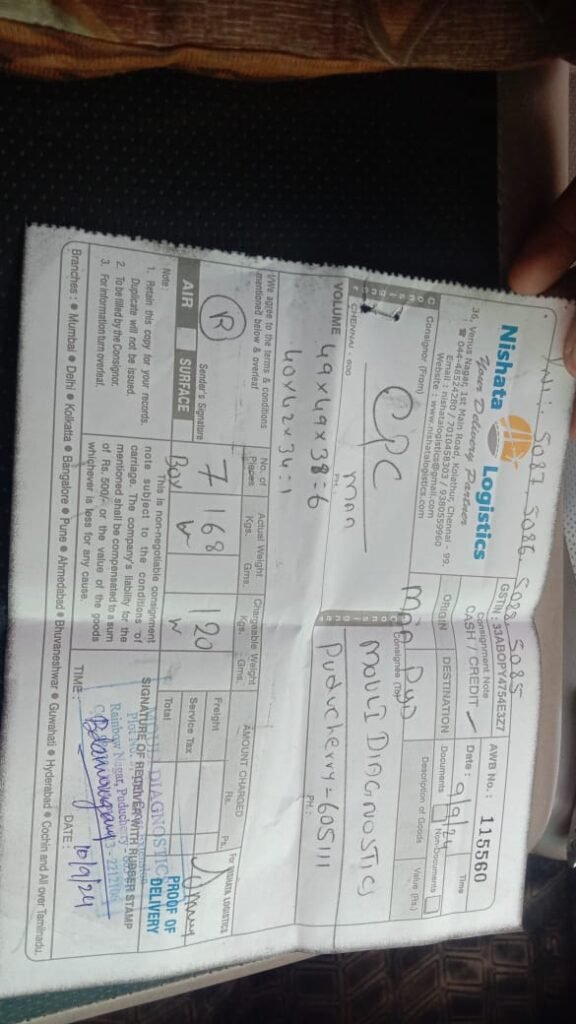 5087 5086. 5088 5085
Nishata Logistics
Your Delivery Partner
36, Venus Nagar, 1st Main Road, Kolathur, Chennai - 99.
☎ 044-48524280 / 7010458303 / 9380559960
Email : nishatalogistics@gmail.com
Website : www.nishatalogistics.com
GSTIN : 33ABOPY4754E3Z7
Consignment Note
CASH / CREDIT
AWB No. : 115560
Date : 9/9/24
Time
ORIGIN
DESTINATION
Documents
Non-Documents
Description of Goods
Value (Rs.)
Consignor (From)
CPC
CHENNAI - 600
PH :
Consignee (To)
MOULI DIAGNOSTICS
Puducherry = 605111
PH :
VOLUME 49x49x38=6
40x42x34:1
I/We agree to the terms & conditions
mentioned below & overleaf
No. of Pieces
Actual Weight
Kgs. Gms.
Chargeable Weight
Kgs. Gms.
AMOUNT CHARGED
Rs. Ps.
For NISHATA LOGISTICS
R
Sender's Signature
7 Box
168
120
Freight
Service Tax
Total
AIR
SURFACE
PROOF OF DELIVERY
Note :
1. Retain this copy for your records.
Duplicate will not be issued.
2. To be filled by the Consignor.
3. For information turn overleaf.
This is non-negotiable consignment
note subject to the conditions of
carriage. The company's liability for the
mentioned shall be compensated to a sum
of Rs. 500/- or the value of the goods
whichever is less for any cause.
SIGNATURE OF RECEIVER WITH RUBBER STAMP
DIAGNOSTIC
Rainbow Nagar, Puducherry
TIME :
DATE : 10/9/24
Branches : ● Mumbai ● Delhi ● Kolkatta ● Bangalore ● Pune ● Ahmedabad ● Bhuvaneshwar ● Guwahati ● Hyderabad ● Cochin and All over Tamilnadu.